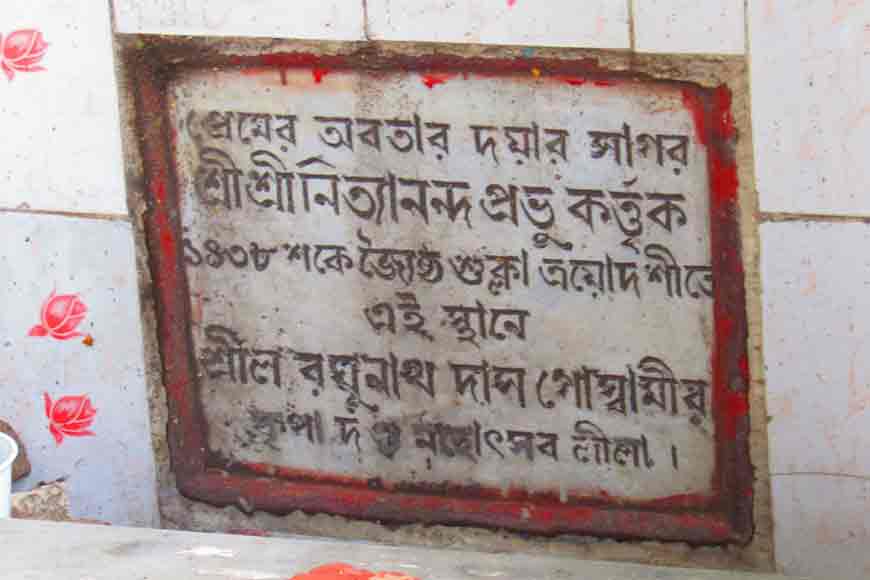 প্রেমের অবতার দয়ার সাগর
শ্রীশ্রীনিত্যানন্দ প্রভু কর্ত্তৃক
১৪৩৮ শকে জ্যৈষ্ঠ শুক্লা ত্রয়োদশীতে
এই স্থানে
শ্রীল রঘুনাথ দাস গোস্বামীর
কৃপা দণ্ড মহোৎসব লীলা।